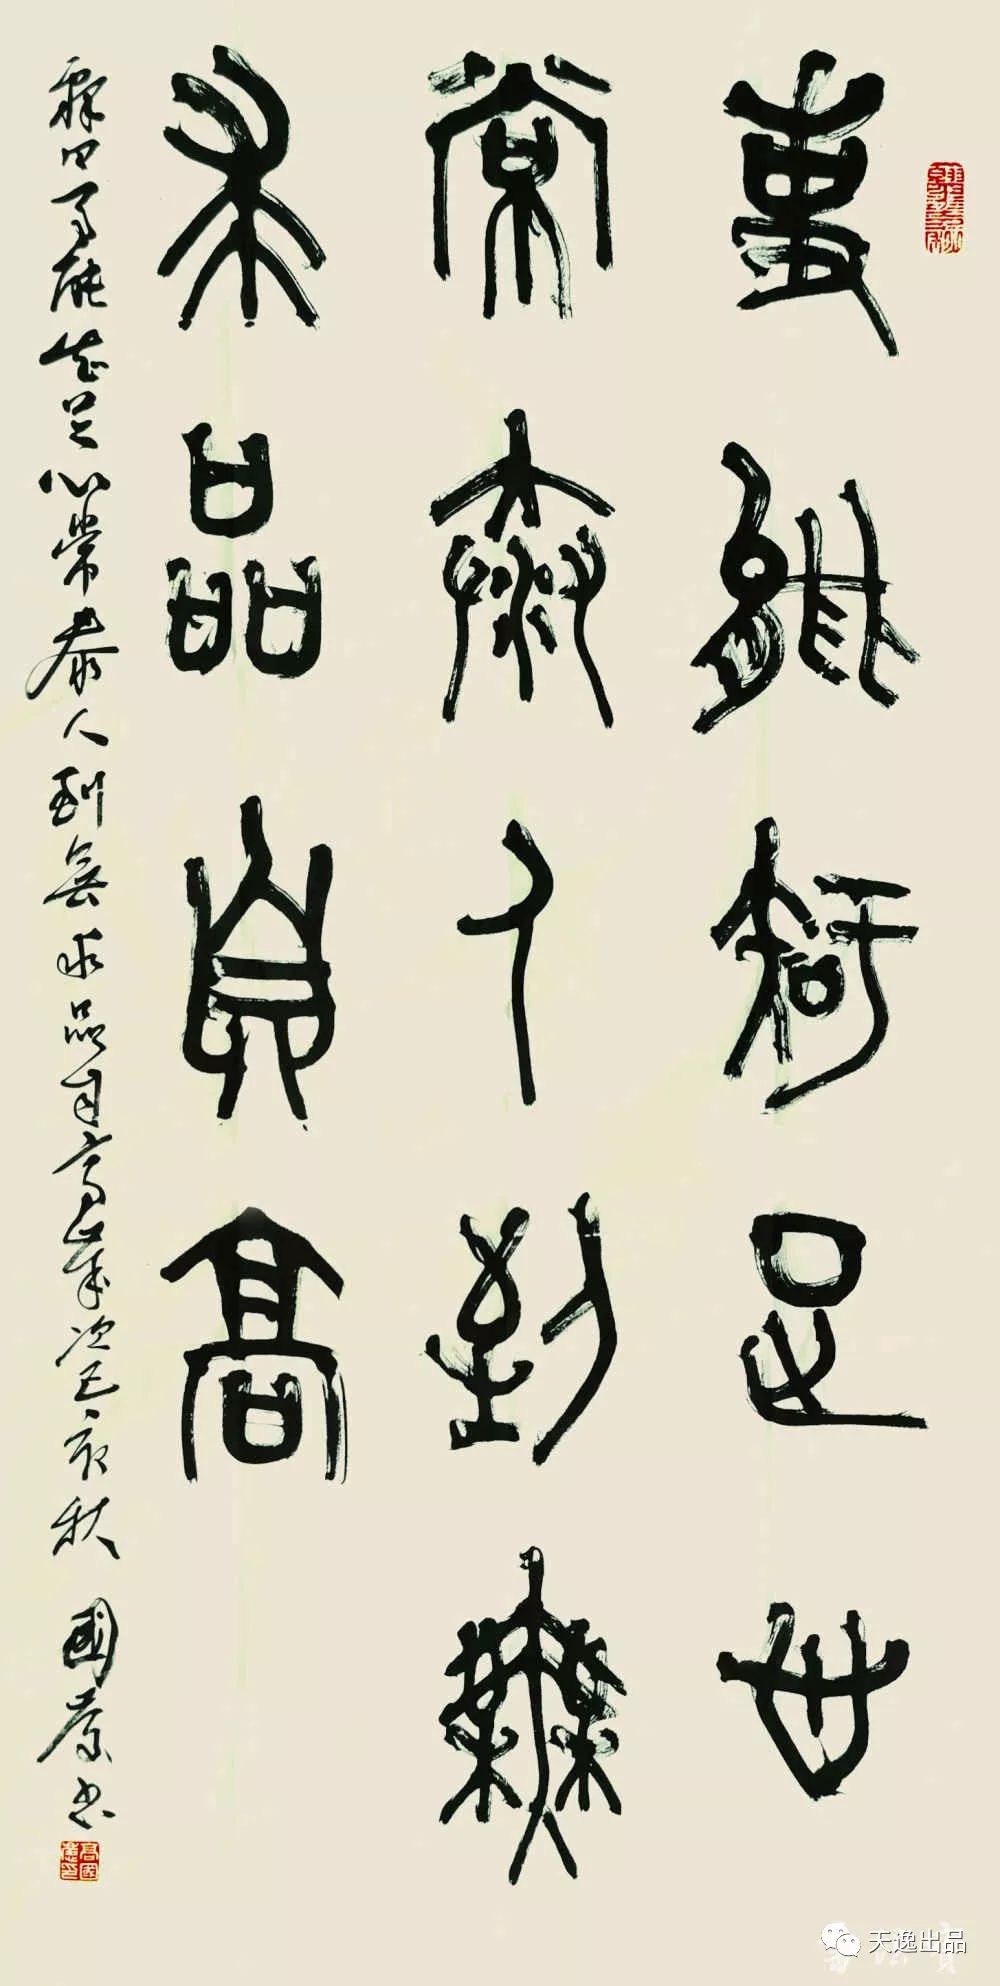 事能知足心
常泰人到無
求品自高
釋曰事能知足心常泰人到無求品自高歲次己亥秋 國慶书
高國慶印
天逸出品